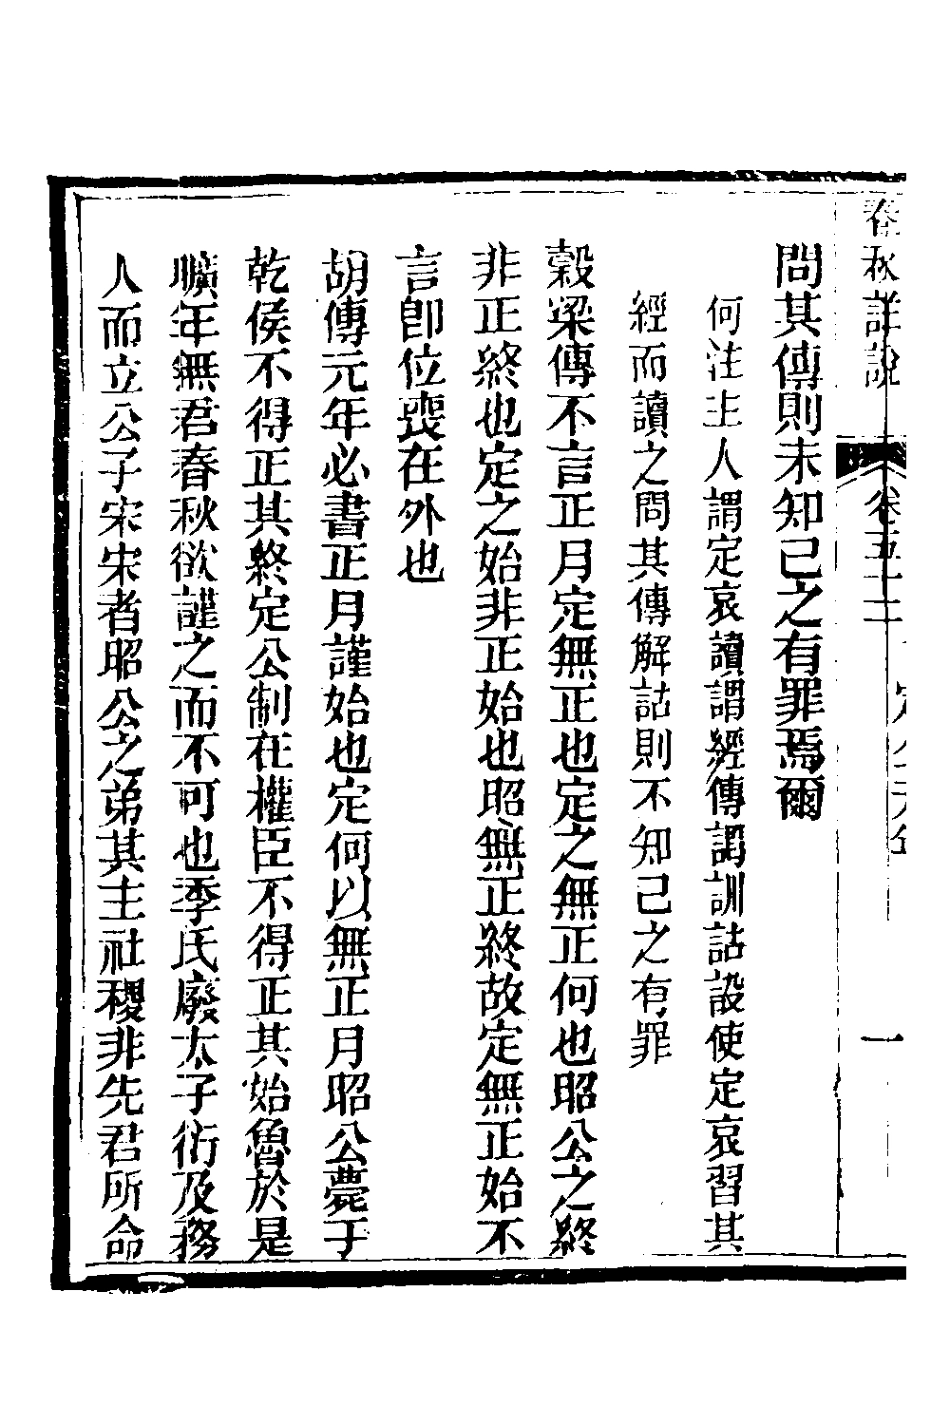 春秋詳說
卷五十二
一
問其傳則未知己之有罪焉爾
何注主人謂定哀讀謂經傳謂訓詁設使定哀習其
經而讀之問其傳解詁則不知己之有罪
穀梁傳不言正月定無正也定之無正何也昭公之終
非正終也定之始非正始也昭無正終故定無正始不
言卽位喪在外也
胡傳元年必書正月謹始也定何以無正月昭公薨于
乾侯不得正其終定公制在權臣不得正其始魯於是
曠年無君春秋欲謹之而不可也季氏廢太子衍及務
人而立公子宋宋者昭公之弟其主社稷非先君所命